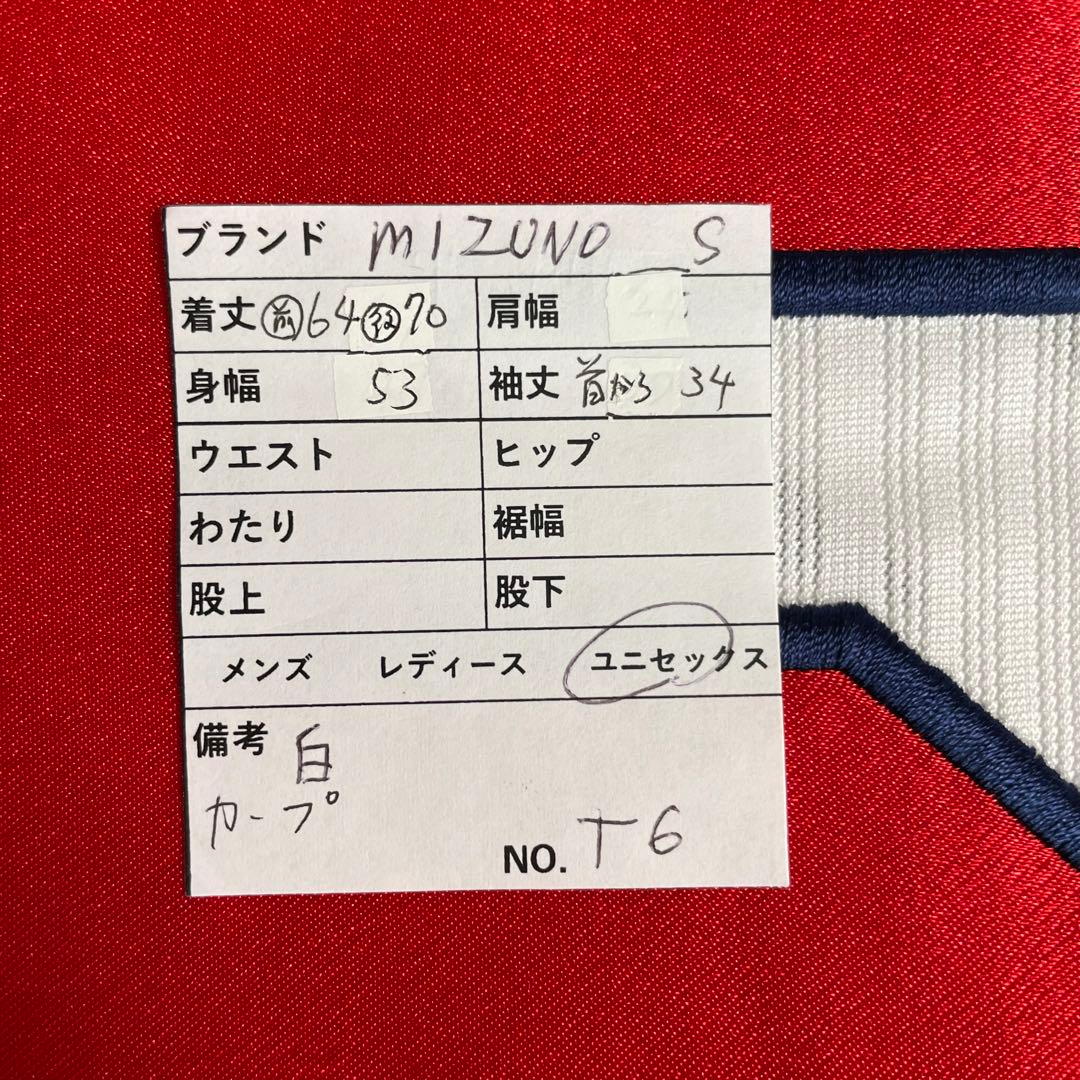 ブランド MIZUNO S
着丈 前64 後70 肩幅
身幅 53 袖丈 首から 34
ウエスト ヒップ
わたり 裾幅
股上 股下
メンズ レディース ユニセックス
備考 白
カープ
NO. T6